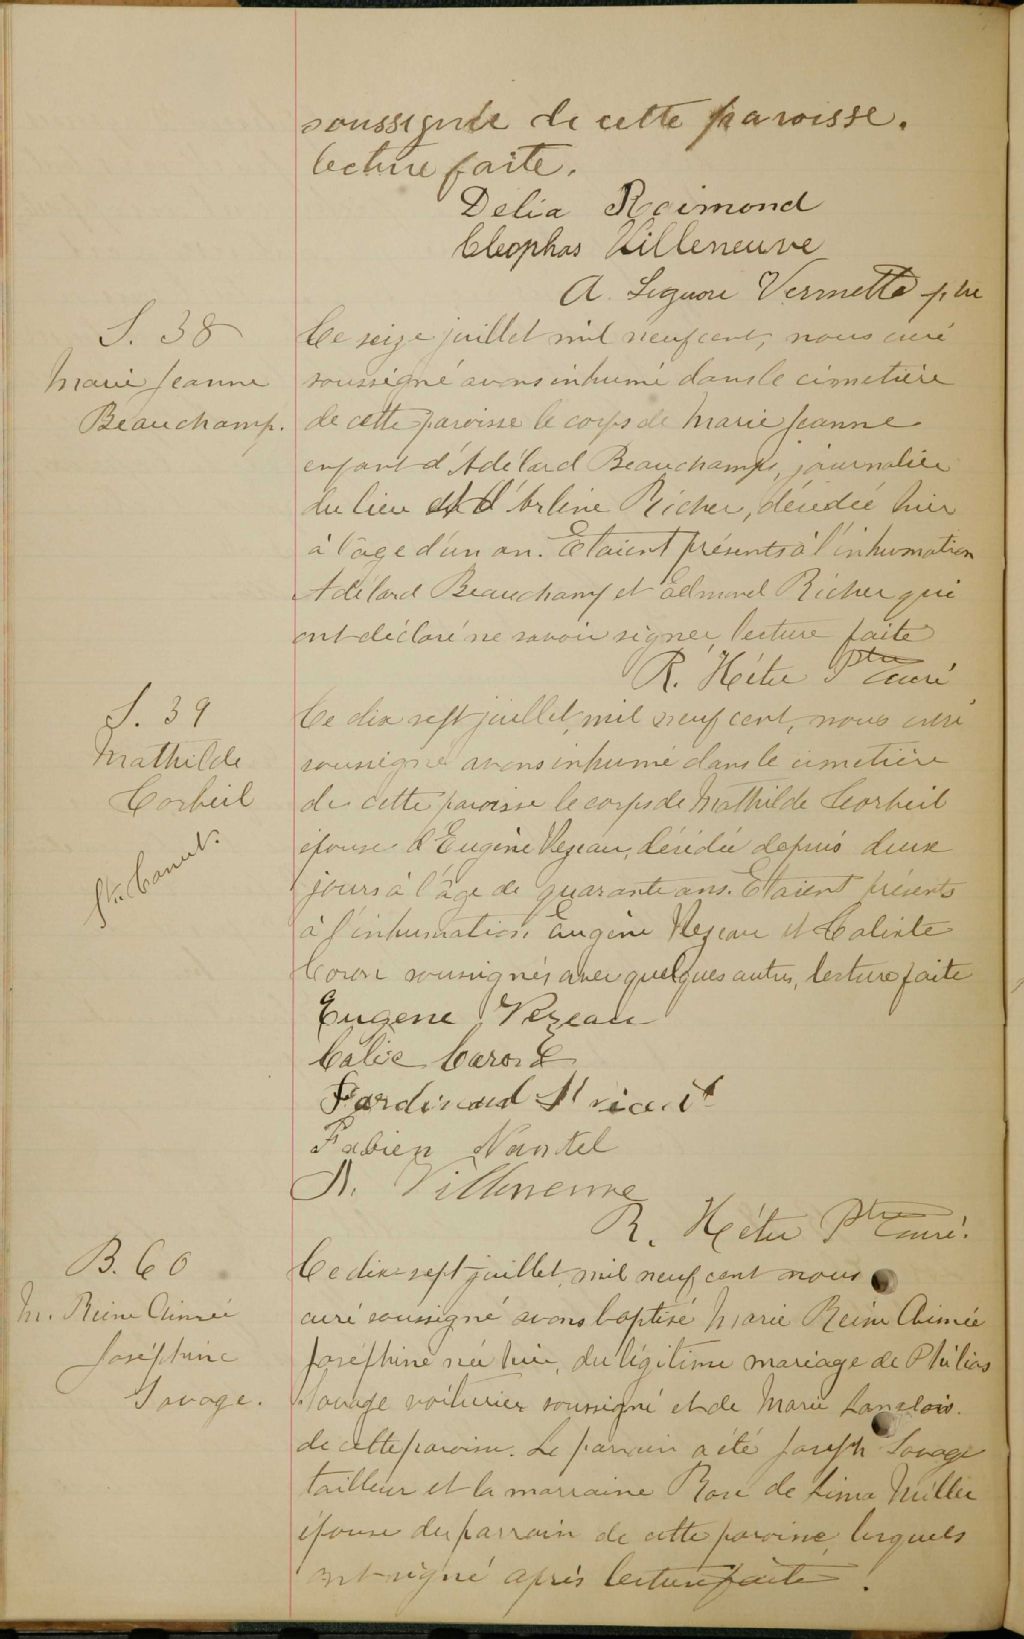 soussignée de cette paroisse.
lecture faite.
Delia Raimond
Cleophas Villeneuve
A. Liguori Vermette ptre
S. 38
Marie Jeanne
Beauchamp.
Ce seize juillet mil neuf cent, nous curé
soussigné avons inhumé dans le cimetière
de cette paroisse le corps de Marie Jeanne
enfant d'Adélard Beauchamp, journalier
du lieu et d' Richer, décédée hier
à l'âge d'un an. Etaient présents à l'inhumation
Adélard Beauchamp et Edmond Richer qui
ont déclaré ne savoir signer, lecture faite
R. Hétu Ptre Curé
S. 39
Mathilde
Corbeil
St. Canut.
Ce dix sept juillet, mil neuf cent, nous curé
soussigné avons inhumé dans le cimetière
de cette paroisse le corps de Mathilde Corbeil
épouse d'Eugène Vezeau, décédée depuis deux
jours à l'âge de quarante ans. Etaient présents
à l'inhumation Eugène Vezeau et Calixte
Caron soussignés avec quelques autres, lecture faite
Eugene Vezeau
Calixe Caron
Ferdinand
Fabien Nantel
N. Villeneuve
R. Hétu Ptre Curé.
B. 60
M. Reine Aimée
Joséphine
Sauvage.
Ce dix sept juillet, mil neuf cent nous
curé soussigné avons baptisé Marie Reine Aimée
Joséphine née hier, du légitime mariage de Philias
Sauvage voiturier soussigné et de Marie Langlois.
de cette paroisse. Le parrain a été Joseph Sauvage
tailleur et la marraine Rose de Lima Millie
épouse du parrain de cette paroisse, lesquels
ont signé après lecture faite.